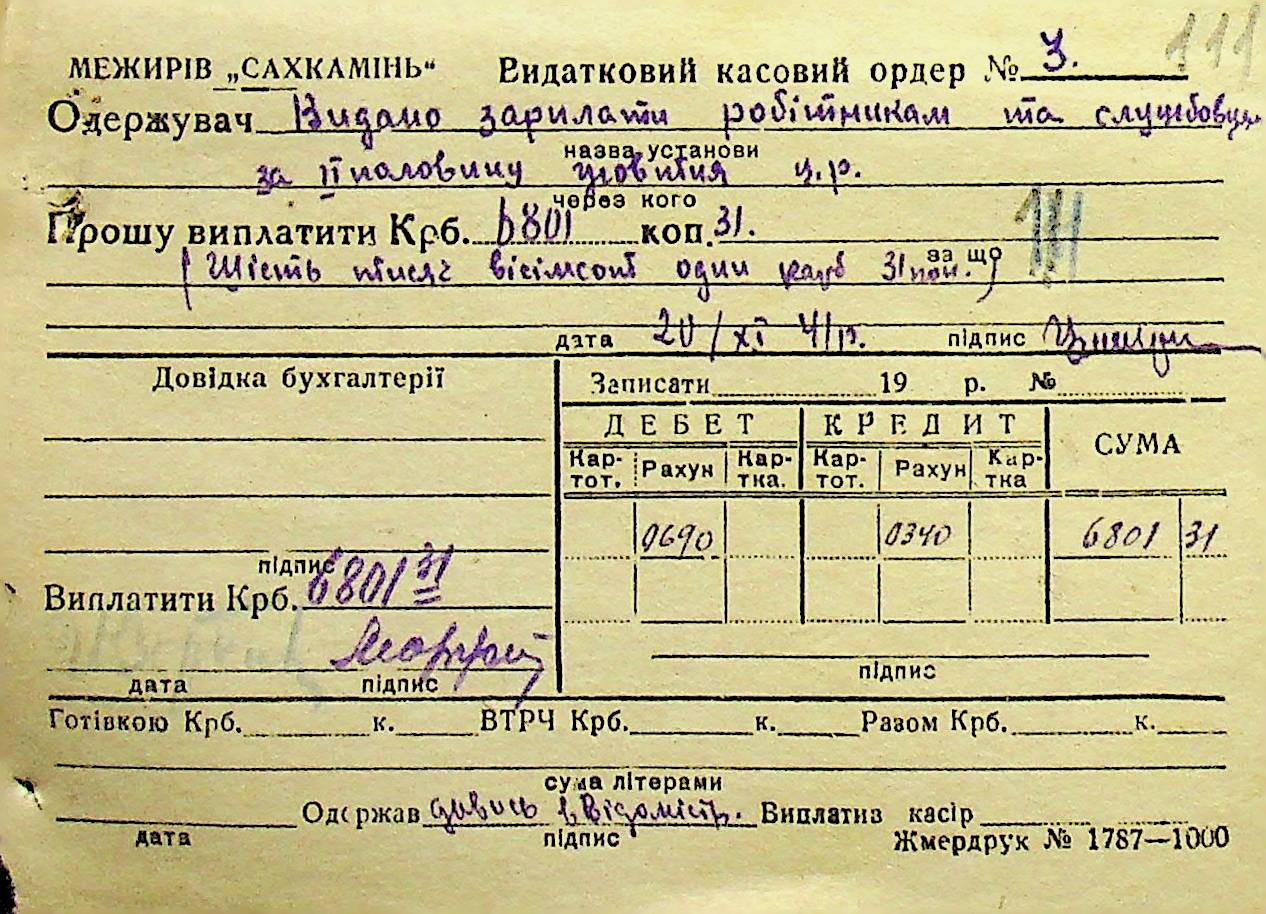 111
МЕЖИРІВ „САХКАМІНЬ“ Видатковий касовий ордер № 3.
Одержувач Видано зарплати робітникам та службовцям
назва установи
за II половину жовтня ц.р.
через кого
Прошу виплатити Крб. 6801 коп. 31.
за що
(Шість тисяч вісімсот один карб 31 коп.)
дата 20/XI 41р. підпис
Довідка бухгалтерії
Записати 19 р. №
ДЕБЕТ КРЕДИТ СУМА
Кар-тот. Рахун Кар-тка. Кар-тот. Рахун Кар-тка
0690 0340 6801 31
підпис
Виплатити Крб. 6801 31
дата підпис
підпис
Готівкою Крб. к. ВТРЧ Крб. к. Разом Крб. к.
сума літерами
Одержав Виплатив касір
дата підпис
Жмердрук № 1787—1000